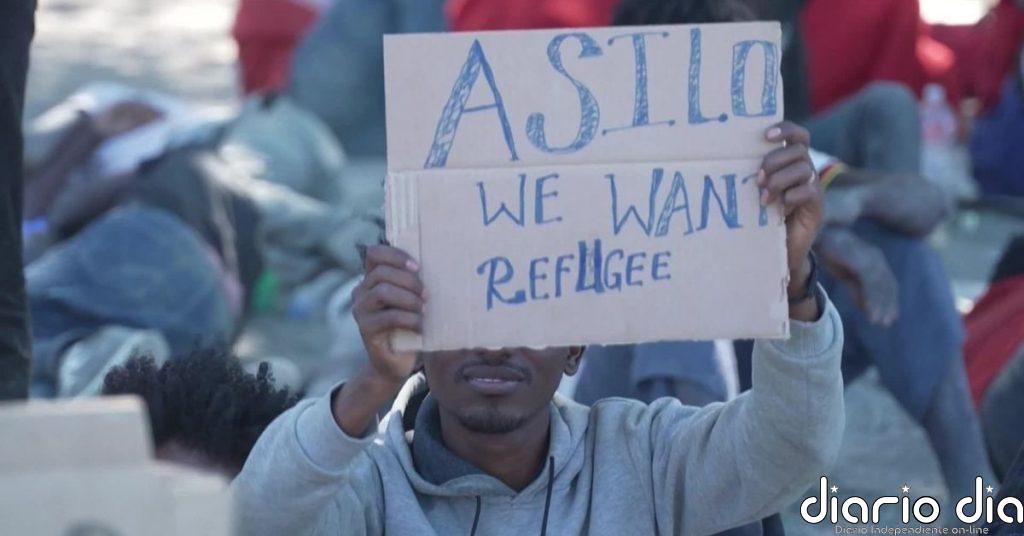 ASILO
WE WANT
REFUGEE
diario dia
Diario Independiente on-line